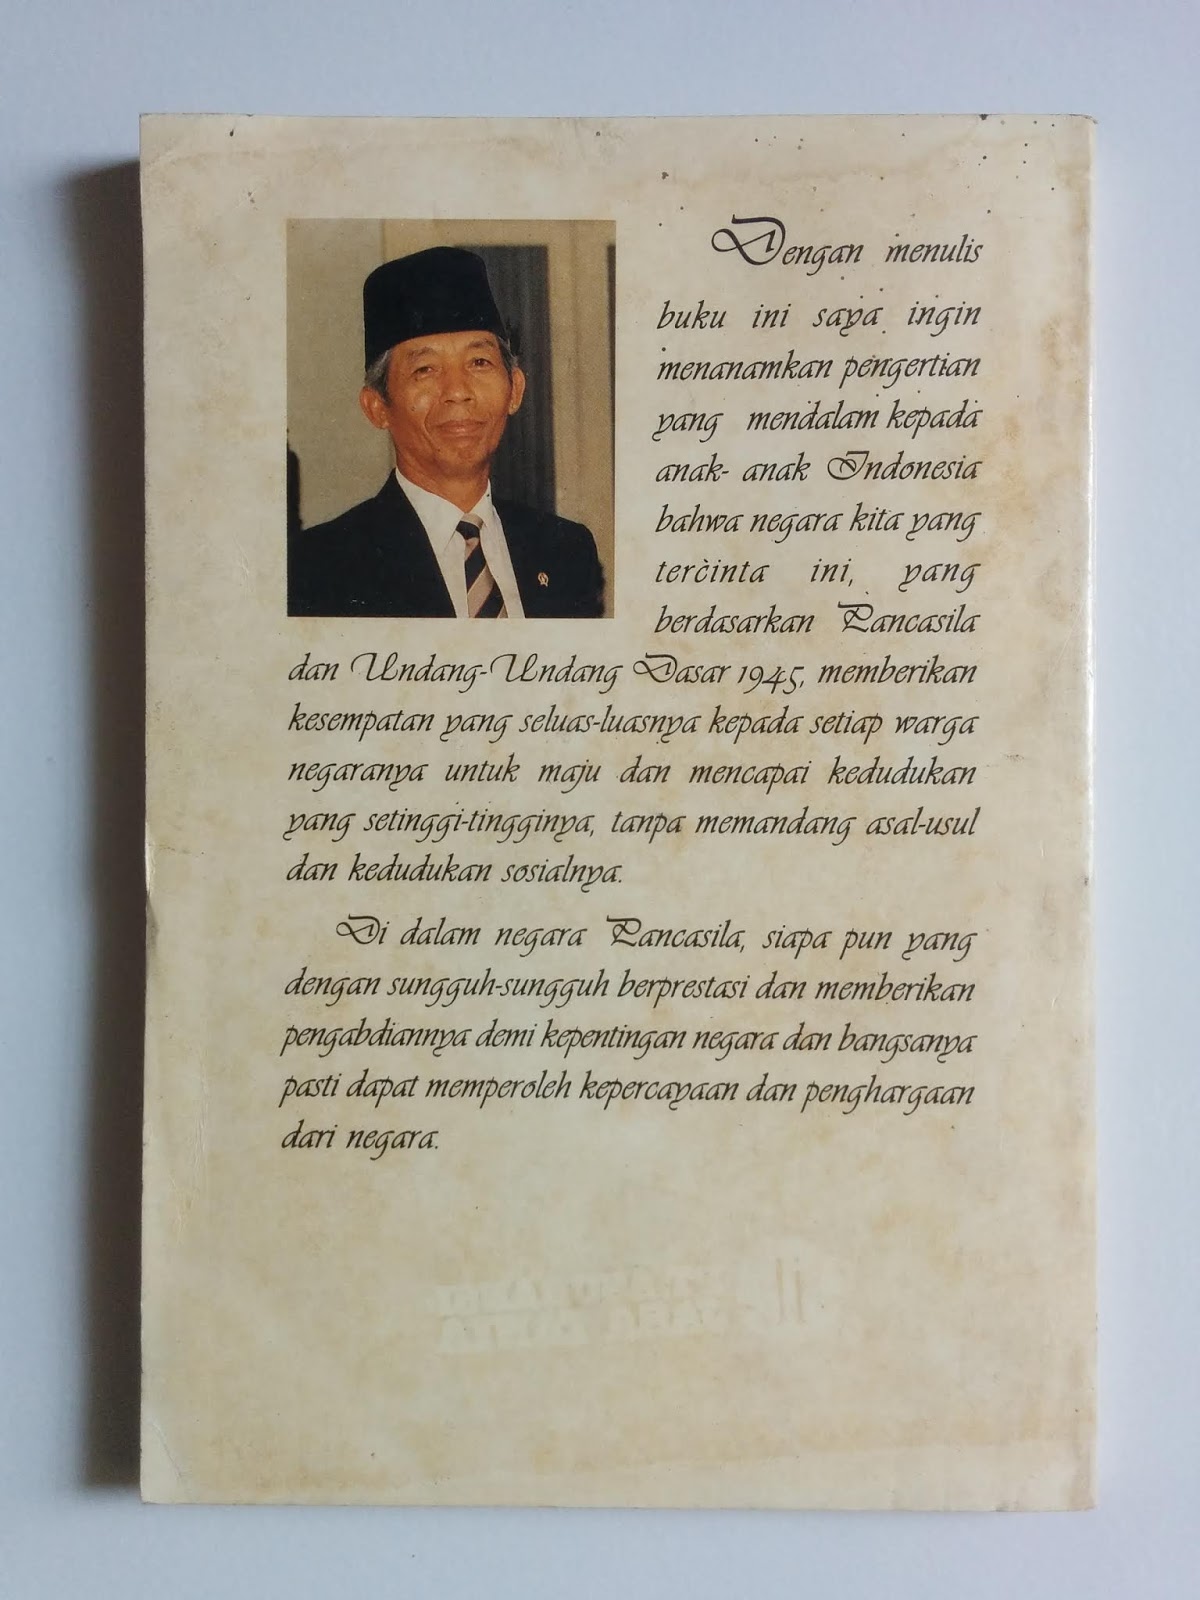 Dengan menulis
buku ini saya ingin
menanamkan pengertian
yang mendalam kepada
anak- anak Indonesia
bahwa negara kita yang
tercinta ini, yang
berdasarkan Pancasila
dan Undang-Undang Dasar 1945, memberikan
kesempatan yang seluas-luasnya kepada setiap warga
negaranya untuk maju dan mencapai kedudukan
yang setinggi-tingginya, tanpa memandang asal-usul
dan kedudukan sosialnya.
Di dalam negara Pancasila, siapa pun yang
dengan sungguh-sungguh berprestasi dan memberikan
pengabdiannya demi kepentingan negara dan bangsanya
pasti dapat memperoleh kepercayaan dan penghargaan
dari negara.